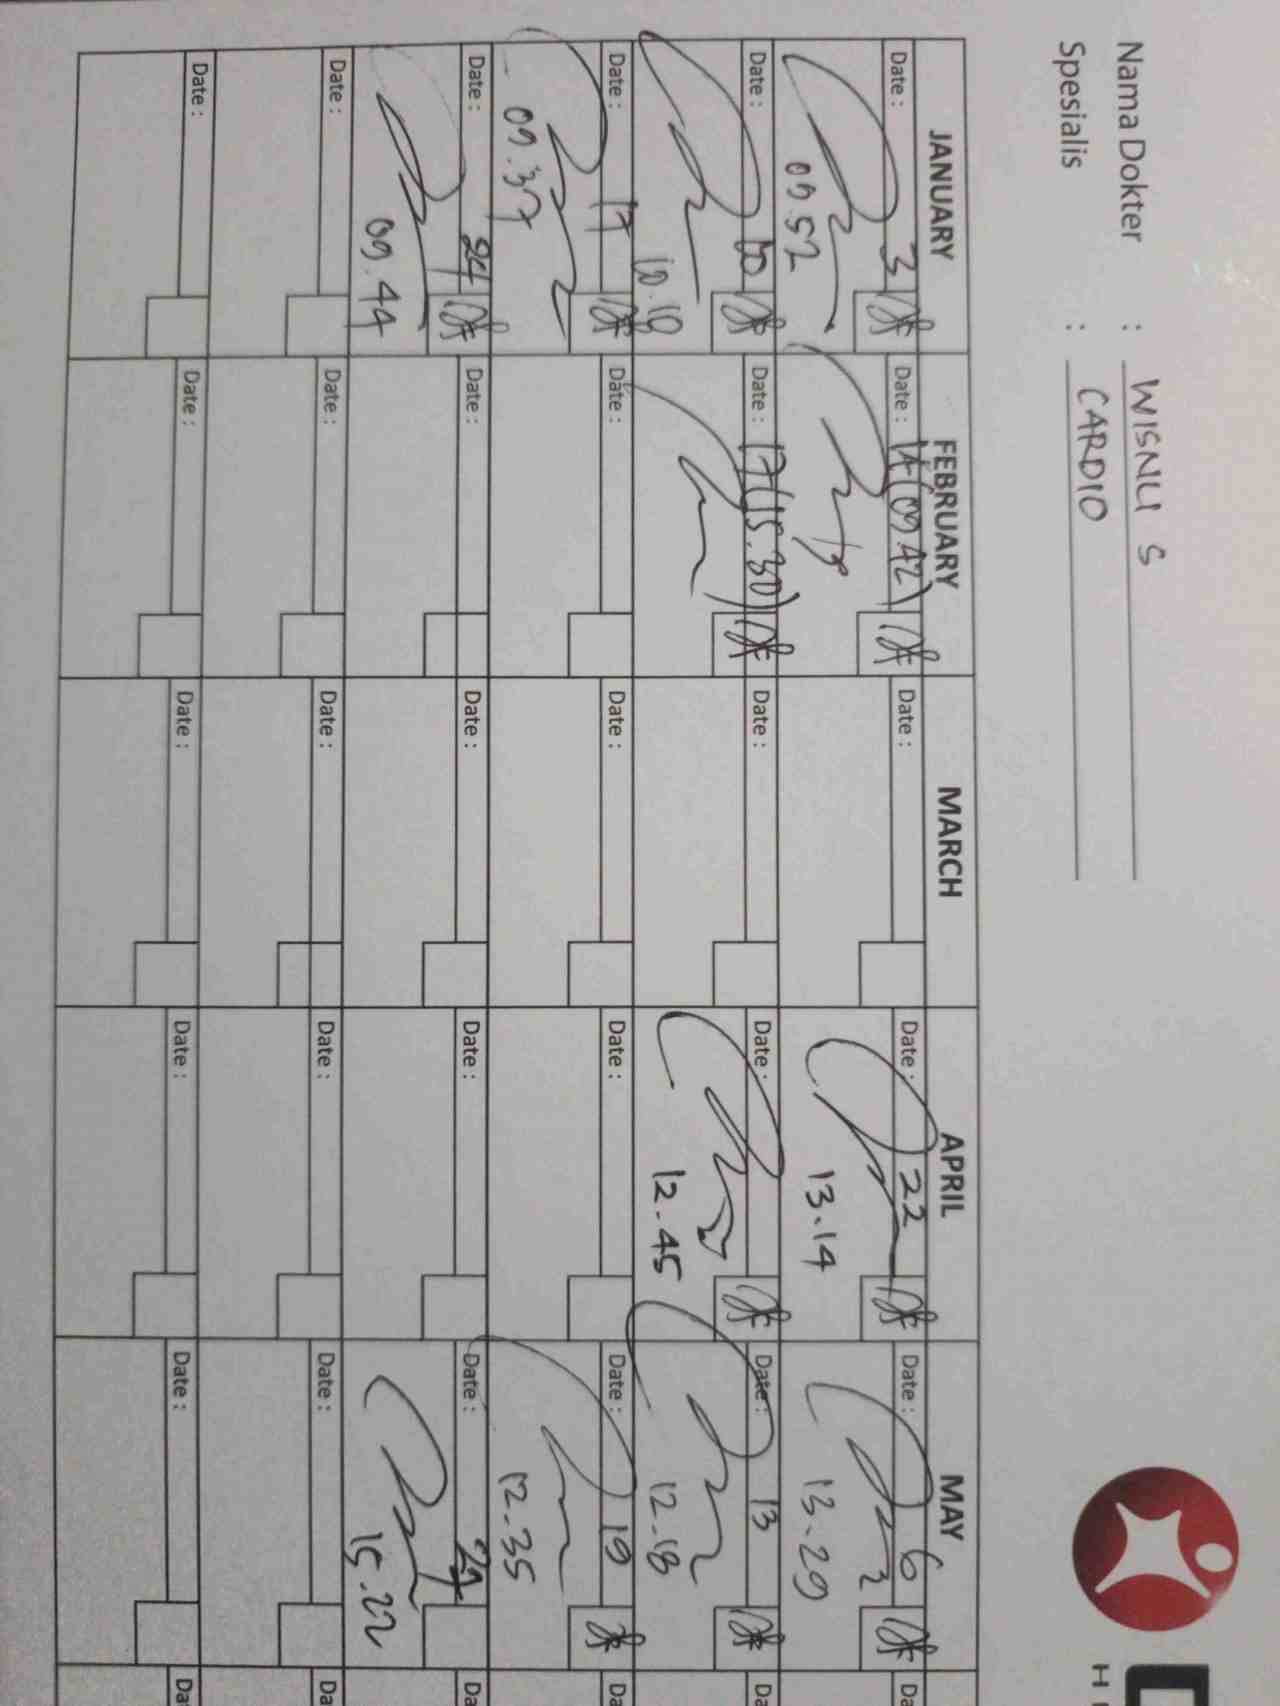 Nama Dokter : WISNU S
Spesialis : CARDIO
JANUARY FEBRUARY MARCH APRIL MAY
Date : 3 Date : 14 (09.42) Date : Date : 22 Date : 6
09.52 13.14 13.29
Date : 10 Date : 17 (15.30) Date : Date : Date : 13
10.10 12.45 12.18
Date : 17 Date : Date : Date : Date : 19
09.37 12.35
Date : 24 Date : Date : Date : Date :
09.44 15.22
Date : Date : Date : Date : Date :
Date : Date : Date : Date : Date :